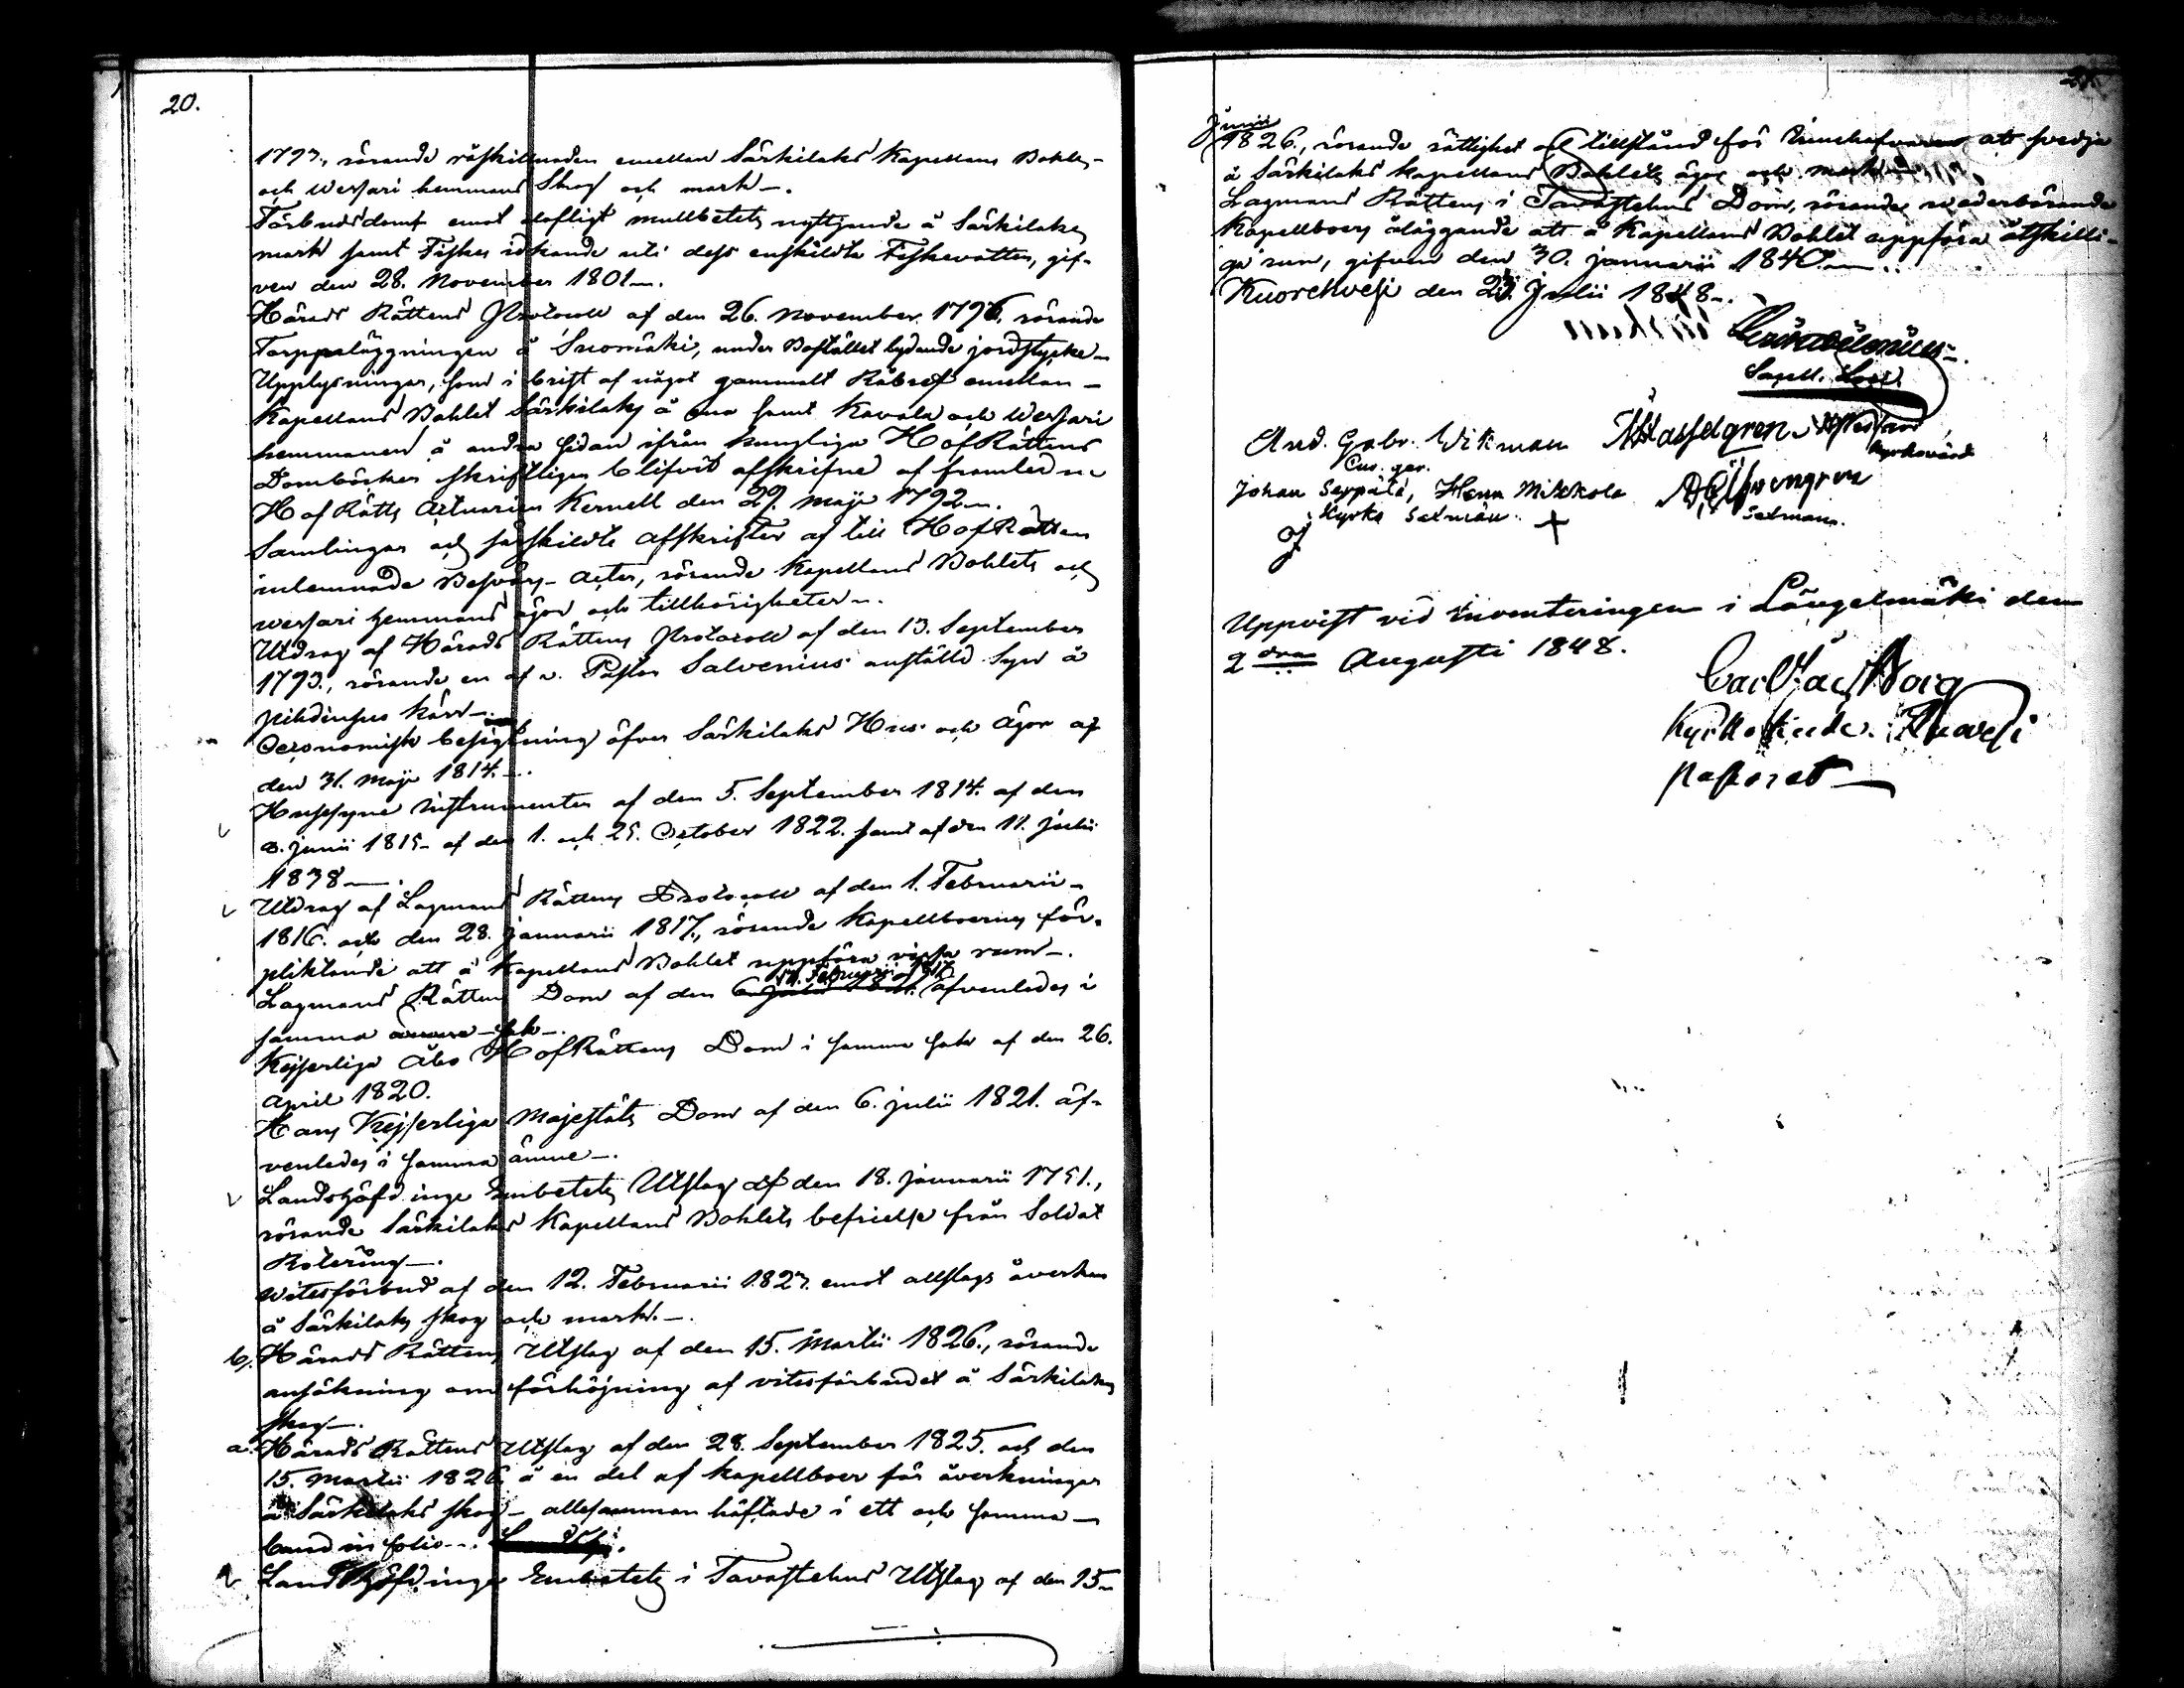 20.
1793., rörande råskillnaden emellan Särkilaks Kapellans Bohls-
och Wessari hemmans Skog och mark-.
Förbudsdomf emot olofligt mullbetets nyttjande å Särkilaks
mark samt Fiskes idkande uti dess enskildta Fiskevatten, gif-
ven den 28. November 1801-.
Härads Rättens Protocoll af den 26. November 1796, rörande
Torppaläggningen å Suomäki, under Bostället lydande jordstycke-
Upplysningar, som i brist af något gammalt Råbref emellan-
Kapellans Bohlet Särkilaks å ena samt Kavala och Wessari
hemmanen å andra sidan ifrån kungliga HofRättens
Domböcker skriftligen blifvit afskrifne af framledne
HofRätts Actuarien Kernell den 29. Maji 1792-.
Samlingar och särskildte afskrifter af till HofRätten
inlemnade Besvärs-Acter, rörande Kapellans Bohlets och
Wessari hemmans ägor och tillhörigheter-.
Utdrag af Härads Rättens Protocoll af den 13. September
1793., rörande en af v. Pastor Salvenius anställd Syn å
kärr-.
Oeconomisk besigtning öfver Särkilaks Hus och Ägor af
den 31. Maji 1814.-.
Hussyne instrumenter af den 5. September 1814. af den
8. junii 1815- af den 1. och 25. October 1822. samt af den 11. Julii
1838-.
Utdrag af Lagmans Rättens Protocoll af den 1. Februarii-
1816. och den 28. Januarii 1817., rörande Kapellboernes för-
pliktande att å Kapellans Bohlet uppföra vissa rum-.
17. Februarii 1817
Lagmans Rättens Dom af den äfvenledes i
samma sak-.
Kejserliga Åbo HofRättens Dom i samma sak af den 26.
April 1820.
Hans Kejserliga Majestäts Dom af den 6. julii 1821. äf-
venledes i samma ämne-.
Landshöfdinge Embetets Utslag af den 18. Januarii 1751.,
rörande Särkilaks Kapellans Bohlets befrielse från Soldat
Rotering-.
Witesförbud af den 12. Februarii 1823. emot allslags åverkan
å Särkilaks skog och mark.-.
b. Härads Rättens Utslag af den 15. Martii 1826., rörande
ansökning om förhöjning af vitesförbudet å Särkilaks
skog-.
a. Härads Rättens Utslag af den 28. September 1825. och den
15. Martii 1826 å en del af kapellboer för åverkningar
å Särkilaks skog- allesamman häftade i ett och samma-
band in folio-.
Landshöfdinge Embetets i Tavastehus Utslag af den 15-
21.
Junii
1826., rörande rättighet och tillstånd för att svedja
å Särkilaks kapellans Bohlets ägor och mark-
Lagmans Rättens i Tavastehus Dom, rörande vederbörande
Kapellboers åläggande att å Kapellans Bohlet uppföra åtskilli-
ga rum, gifven den 30. januarii 1840-.
Kuorehvesi den 23. Julii 1848-.
Capell. Loci.
And. Gabr. Wikman Hasselgren
Kyrkovärd
Johan Seppälä, Henr Mikkola
Kyrko Sexmän. Sexman.
Uppvist vid inventeringen i Längelmäki den
2 dra Augusti 1848.
Carl Jac Borg
Kyrkoherde.
Pastorat-